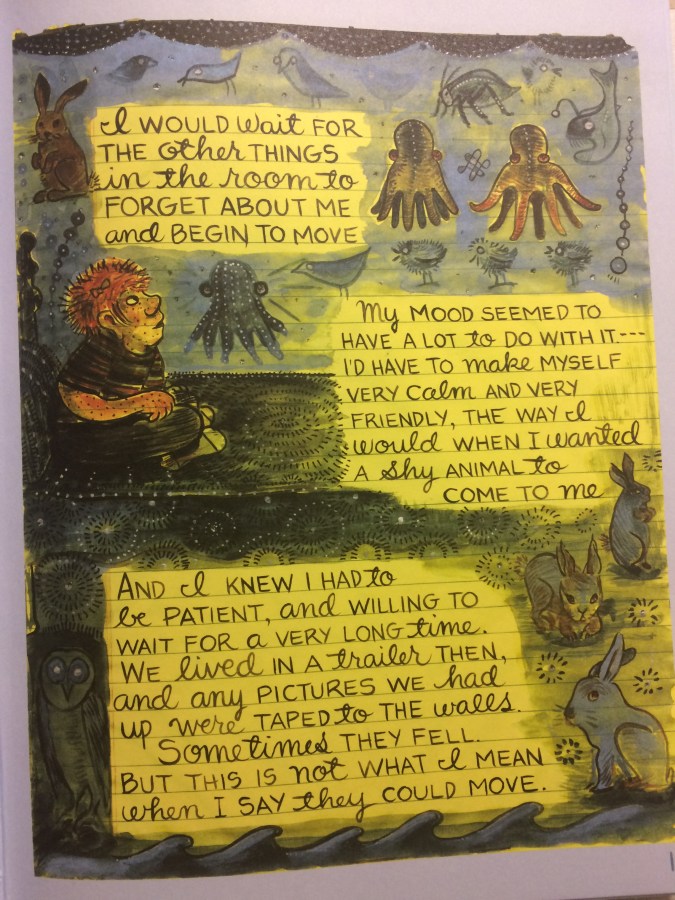 I WOULD Wait FOR
THE other THINGS
in the room to
FORGET ABOUT ME
and BEGIN TO MOVE
My MOOD SEEMED TO
HAVE A LOT to DO WITH IT----
I'D HAVE TO make MYSELF
VERY Calm AND VERY
FRIENDLY, THE WAY I
would WHEN I wanted
A shy ANIMAL to
COME TO me
AND I KNEW I HAD to
be PATIENT, and WILLING TO
WAIT FOR a VERY LONG time.
WE lived IN A trailer THEN,
and any PICTURES WE had
up were TAPED to THE walls.
Sometimes THEY FELL.
BUT THIS IS not WHAT I MEAN
when I SAY they COULD MOVE.